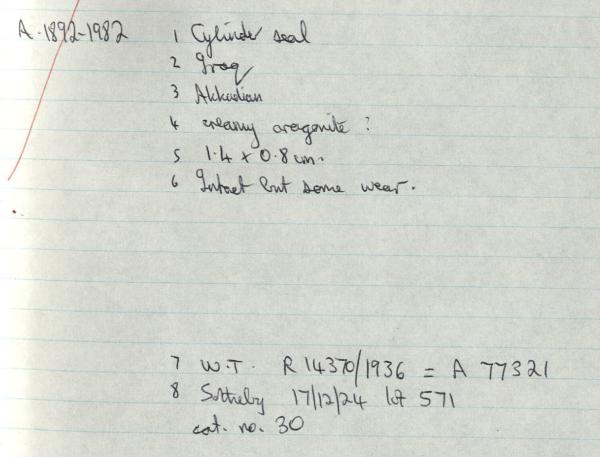 A.1892-1982 1 Cylinder seal
2 Iraq
3 Akkadian
4 creamy aragonite ?
5 1.4 x 0.8 cm.
6 Intact but some wear.
7 W.T. R 14370/1936 = A 77321
8 Sotheby 17/12/24 lot 571
cat. no. 30